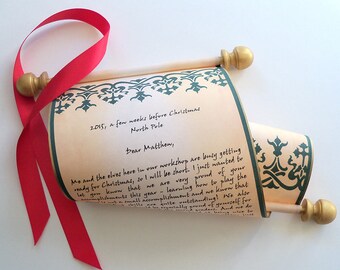 2015, a few weeks before Christmas
North Pole
Dear Matthew,
Me and the elves here in our workshop are busy getting
ready for Christmas, so I will be short. I just wanted to
let you know that we are very proud of your
accomplishments this year - learning how to play the
is a small accomplishment and we know that
skills you have outstanding! We also
proud of yourself for